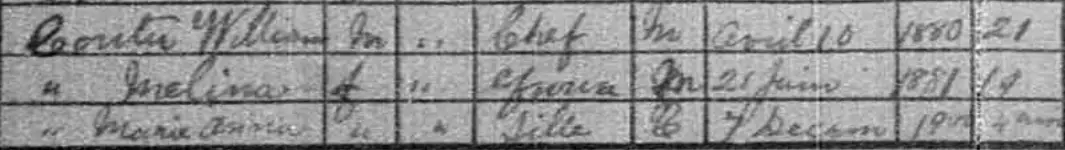 Coutu William M " Chef M Avril 10 1880 21
" Melina f " Epouse M 21 Juin 1881 19
" Marie Anna " " Fille C 7 Decem 1900